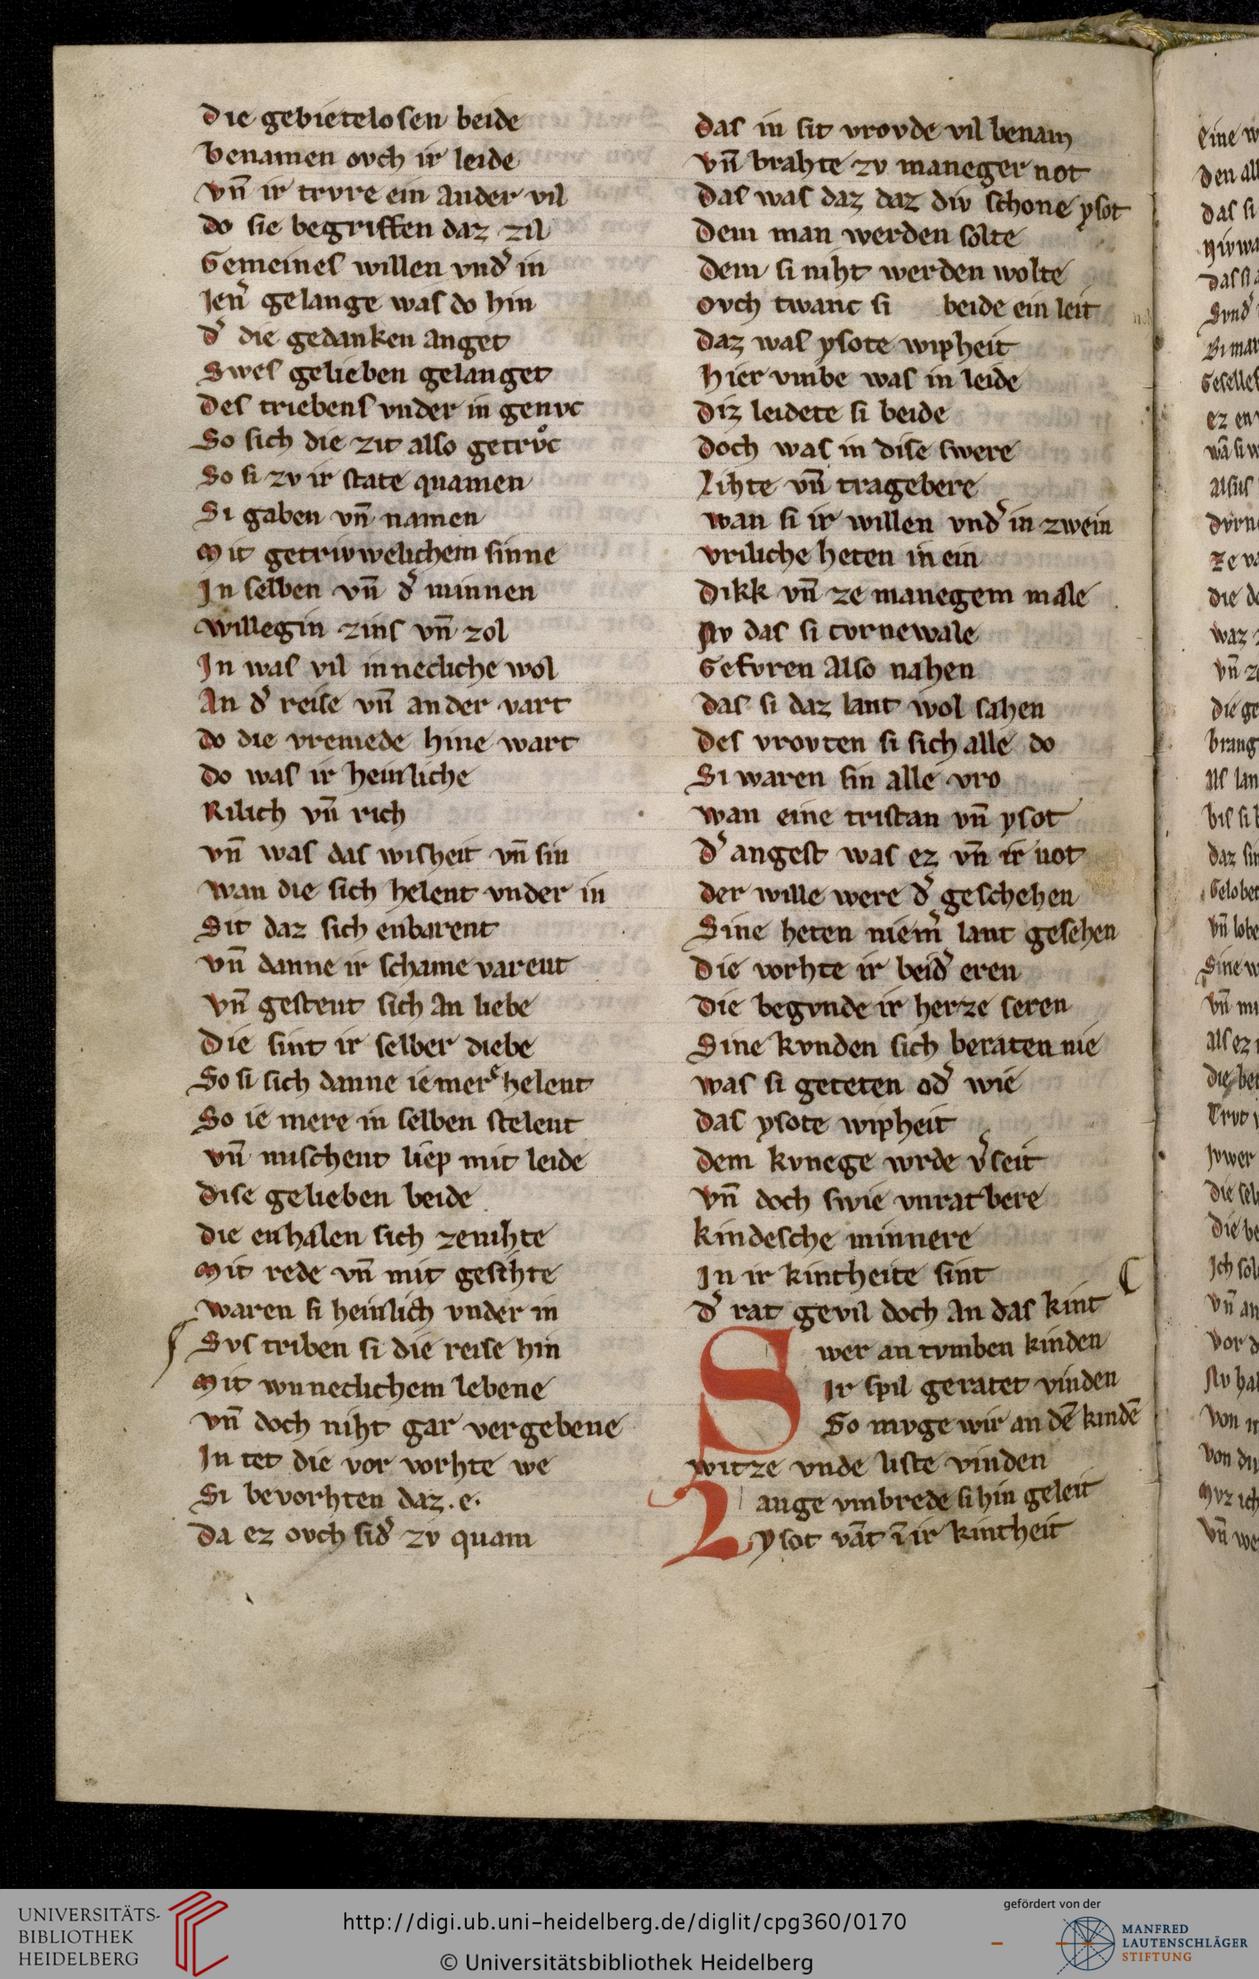 die gebietelosen beide
benamen ovch ir leide
vn̄ ir trvre ein ander vil
do sie begriffen daz zil
Gemeines willen vnd᷑ in
Jen᷑ gelange was do hin
d᷑ die gedanken anget
Swes gelieben gelanget
Des triebens vnder in genvc
So sich die zit also getrvͦc
So si zv ir state quamen
Si gaben vn̄ namen
Mit getrivwelichem sinne
In selben vn̄ d᷑ minnen
willegin zins vn̄ zol
In was vil innecliche wol
An d᷑ reise vn̄ an der vart
do die vremede hine wart
do was ir heinliche
Rilich vn̄ rich
vn̄ was das wisheit vn̄ sin
wan die sich helent vnder in
Sit daz sich enbarent
vn̄ danne ir schame varent
vn̄ gestent sich an liebe
Die sint ir selber diebe
So si sich danne iemer helent
So ie mere in selben stelent
vn̄ mischent liep mit leide
dise gelieben beide
die enhalen sich zenihte
Mit rede vn̄ mit gesihte
waren si heinlich vnder in
Svs triben si die reise hin
Mit wuneclichem lebene
vn̄ doch niht gar vergebene
In tet die vor vorhte we
Si bevorhten daz .e.
Da ez ovch sid᷑ zv quam
das in sit vrovde vil benam
vn̄ brahte zv maneger not
Das was daz daz div schone ysot
Dem man werden solte
dem si niht werden wolte
ovch twanc si beide ein leit
daz was ysote wipheit
hier vmbe was in leide
diz leidete si beide
doch was in dise swere
Lihte vn̄ tragebere
wan si ir willen vnd᷑ in zwein
vriliche heten in ein
Dikk vn̄ ze manegem male
Nv das si cvrnewale
Gefvren also nahen
das si daz lant wol sahen
des vrovten si sich alle do
Si waren sin alle vro
wan eine tristan vn̄ ysot
d᷑ angest was ez vn̄ ir not
der wille were d᷑ geschehen
Sine heten niem᷑ lant gesehen
Die vorhte ir beid᷑ eren
Die begvnde ir herze seren
Sine kvnden sich beraten nie
was si geteten od᷑ wie
das ysote wipheit
dem kvnege wrde v᷑seit
vn̄ doch swie vnratbere
kindesche minnere
In ir kintheite sint
d᷑ rat gevil doch an das kint
Swer an tvmben kinden
Ir spil geratet vinden
So mvge wir an dē kindē
witze vnde liste vinden
Lange vmbrede si hin geleit
ysot vāt ī ir kintheit
UNIVERSITÄTS-
BIBLIOTHEK
HEIDELBERG
http://digi.ub.uni-heidelberg.de/diglit/cpg360/0170
© Universitätsbibliothek Heidelberg
gefördert von der
MANFRED
LAUTENSCHLÄGER
STIFTUNG